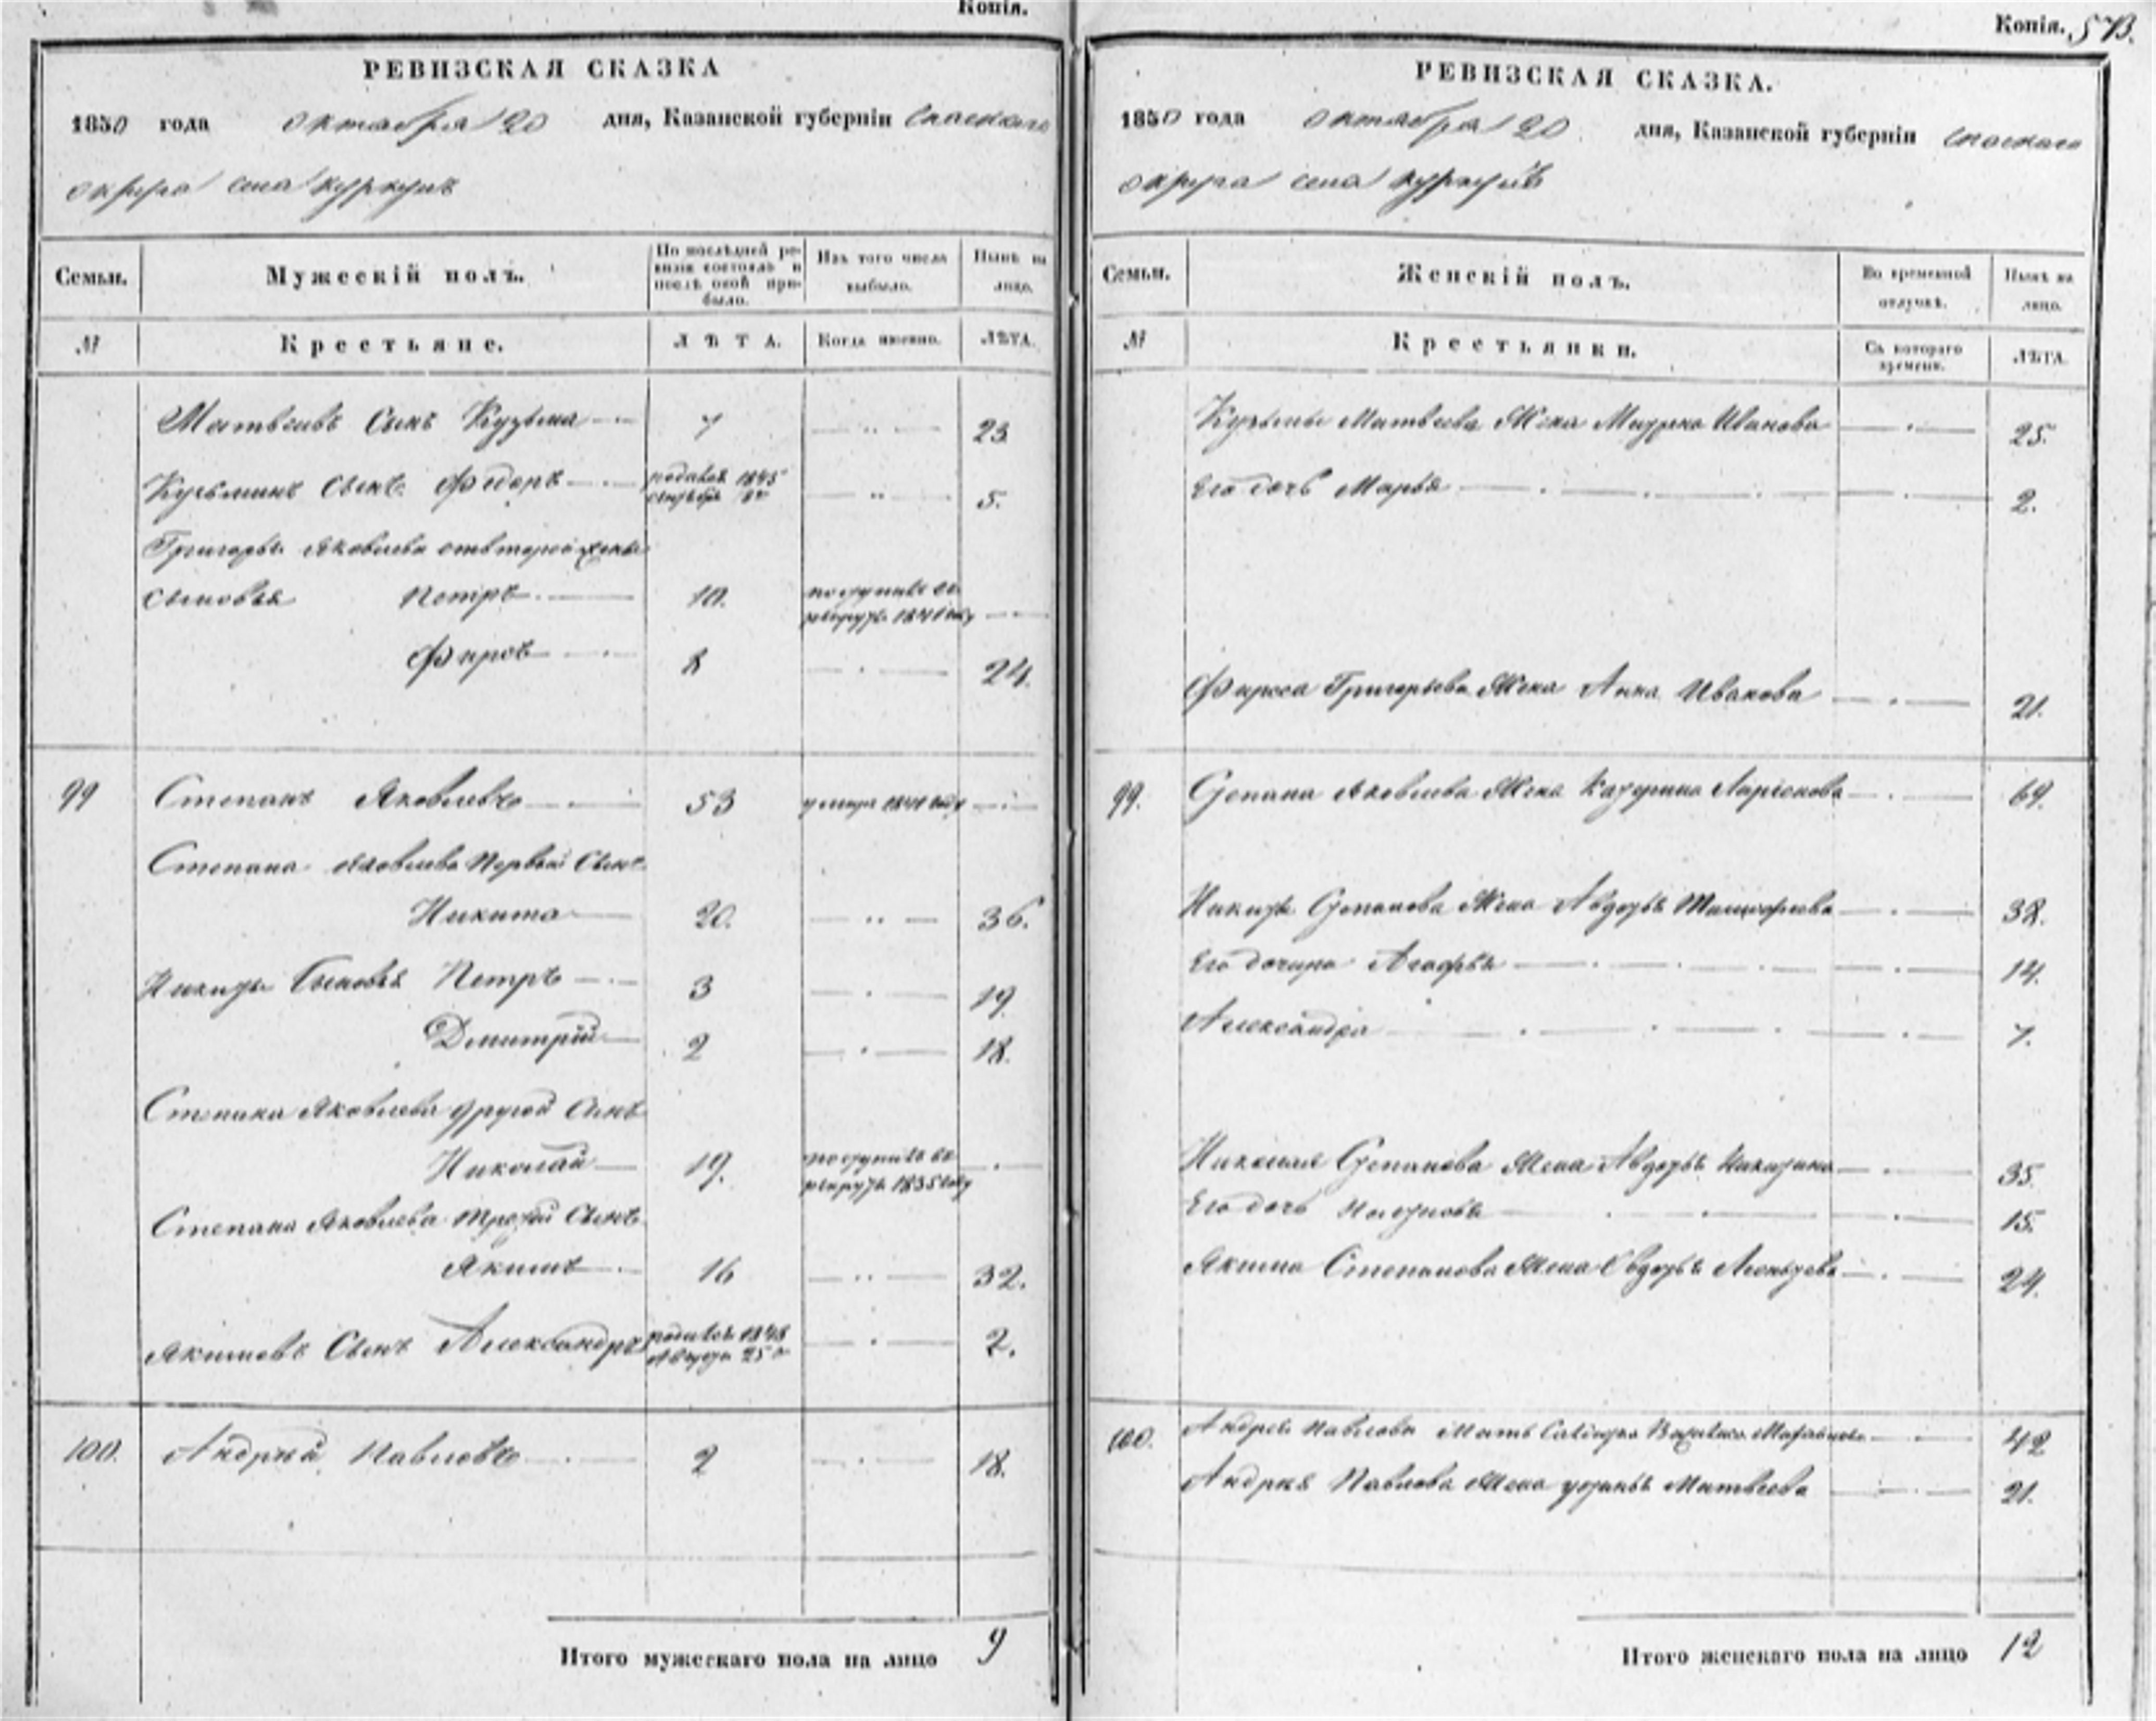 Копія.
РЕВИЗСКАЯ СКАЗКА
1850 года октября 20 дня, Казанской губерніи Спаскаго
округа села куркуль
Семьи.
Мужескій полъ.
По послѣдней ре-
визіи состояло и
послѣ оной при-
было.
Изъ того числа
выбыло.
Нынѣ на
лицо.
№
Крестьяне.
ЛѢТА.
Когда именно.
ЛѢТА.
Матвеивъ Сынъ Кузьма 7 23
Кузьминъ Сынъ Федоръ родился 1845 5.
Григорья Яковлева отвторой жены
сыновья Петръ 10. поступилъ въ
рекруты 1841 году
Фирсъ 8 24.
99 Степанъ Яковлевъ 53 умеръ 1841 году
Степана Яковлева Первый Сынъ
Никита 20. 36.
Никиты Сыновья Петръ 3 19.
Дмитрій 2 18.
Степана Яковлева другой Сынъ
Николай 19. поступилъ въ
рекруты 1835 году
Степана Яковлева третій Сынъ
Якимъ 16 32.
Якимовъ Сынъ Александръ родился 1848
Августа 25 2.
100. Андрей Павловъ 2 18.
Итого мужескаго пола на лицо 9
Копія. 573.
РЕВИЗСКАЯ СКАЗКА.
1850 года октября 20 дня, Казанской губерніи Спаскаго
округа села куркуль
Семьи.
Женскій полъ.
Во временной
отлучкѣ.
Нынѣ на
лицо.
№
Крестьянки.
Съ котораго
времени.
ЛѢТА.
Кузьмы Матвеева Жена Иванова 25.
Его дочь Марья 2.
Фирса Григорьева Жена Анна Иванова 21.
99. Степана Яковлева Жена Катерина Ларіонова 69.
Никиты Степанова Жена Авдотья 38.
Его дочери Агафья 14.
Александра 7.
Николая Степанова Жена Авдотья Никитина 35
Его дочь 15.
Якима Степанова Жена Авдотья Леонтьева 24.
100. Андрея Павлова Мать 42
Андрея Павлова Жена устинья Матвеева 21.
Итого женскаго пола на лицо 12